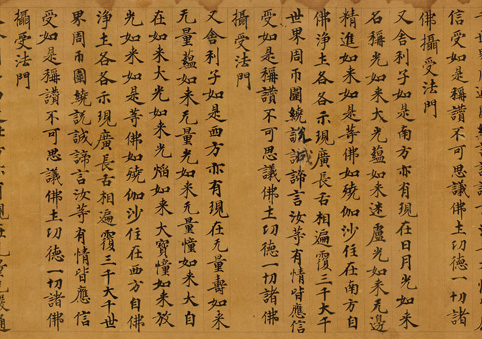 信受如是稱讚不可思議佛土功德一切諸
佛攝受法門
又舍利子如是南方亦有現在日月光如來
名稱光如來大光蘊如來迷盧光如來无邊
精進如來如是等佛如殑伽沙住在南方自
佛淨土各各示現廣長舌相遍覆三千大千
世界周帀圍繞說誠諦言汝等有情皆應信
受如是稱讚不可思議佛土功德一切諸佛
攝受法門
又舍利子如是西方亦有現在无量壽如來
无量蘊如來无量光如來无量幢如來大自
在如來大光如來光焰如來大寶幢如來放
光如來如是等佛如殑伽沙住在西方自佛
淨土各各示現廣長舌相遍覆三千大千世
界周帀圍繞說誠諦言汝等有情皆應信
受如是稱讚不可思議佛土功德一切諸佛
攝受法門